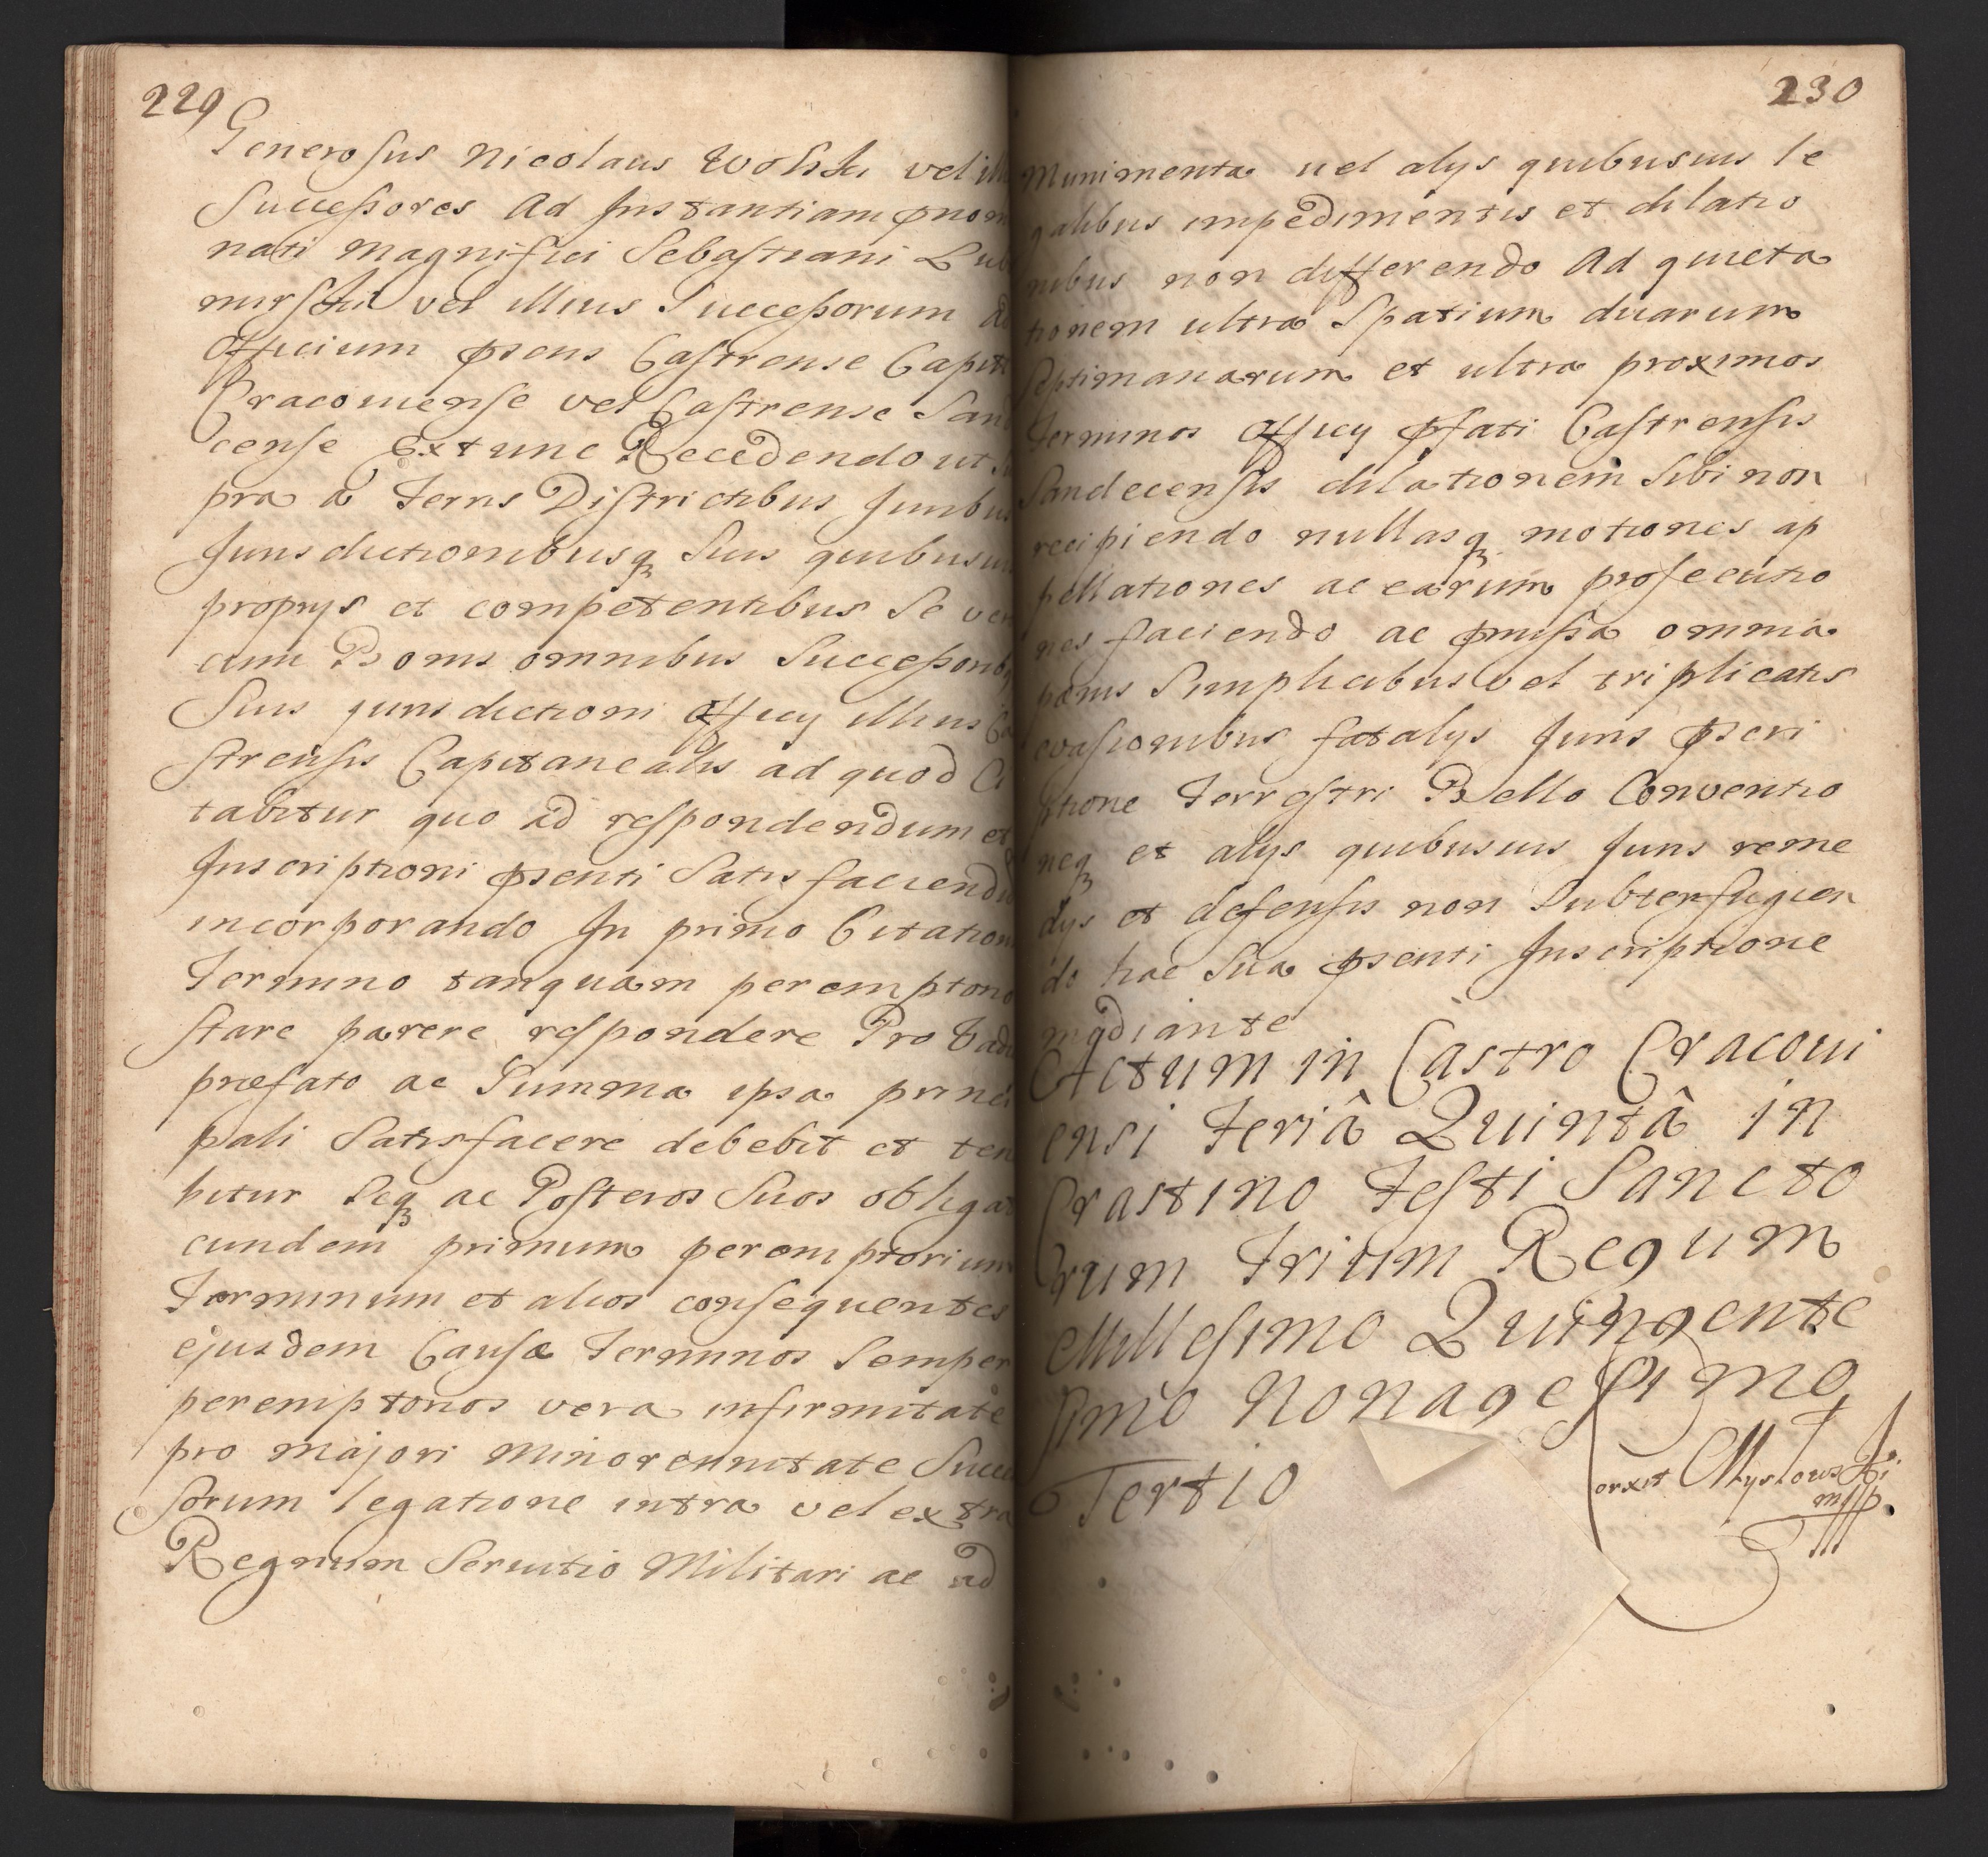 229
Generosus Nicolaus Wolski vel illi
Successores Ad Instantiam pnomi
nati Magnifici Sebastiani Lubo
mirski vel illius Successorum ad
Officium psens Castrense Capit
Cracoviense vel Castrense Sand
cense Extunc Recedendo ut Su
pra a Terris Districtibus Juribus
Jurisdictionibusq suis quibusuis
proprys et competentibus Se ver
cum Bonis omnibus Successoribq
Suis jurisdictioni Officy illius Ca
strensis Capitanealis ad quod Ci
tabitur quo ad respondendum et
Inscriptioni psenti Satisfaciendu
incorporando In primo Citation
Termino tanquam peremptorio
stare parere respondere Pro Vadio
præfato ac Summa ipsa princi
pali Satisfacere debebit et ten
bitur Seq ac Posteros Suos obligat
eundem primum peremptorium
Terminum et alios consequentes
ejusdem Causæ Terminos Semper
peremptorios vera infirmitate
pro majori Minorennitate Succes
sorum legatione intra vel extra
Regnum Servitio Militari ac ad
230
Munimenta uel alys quibusuis le
galibus impedimentis et dilatio
nibus non differendo Ad quieta
tionem ultra Spatium duarum
Septimanarum et ultra proximos
Terminos Officy pfati Castrensis
Sandecensis dilationem Sibi non
recipiendo nullasq motiones ap
pellationes ac earum prosecutio
nes faciendo ac pmissa omnia
pœnis Simplicibus vel triplicatis
evasionibus fatalys Juris pscri
ptione Terrestri Bello Conventio
neq et alys quibusuis Juris reme
dys et defensis non Subterfugien
do hac Sua psenti Inscriptione
mediante
Actum in Castro Cracoui
ensi Feriâ Quintâ in
Crastino Festi Sancto
rum Trium Regum
Millesimo Quingente
simo Nonagesimo
Tertio
orxit Myslowski
mpp.